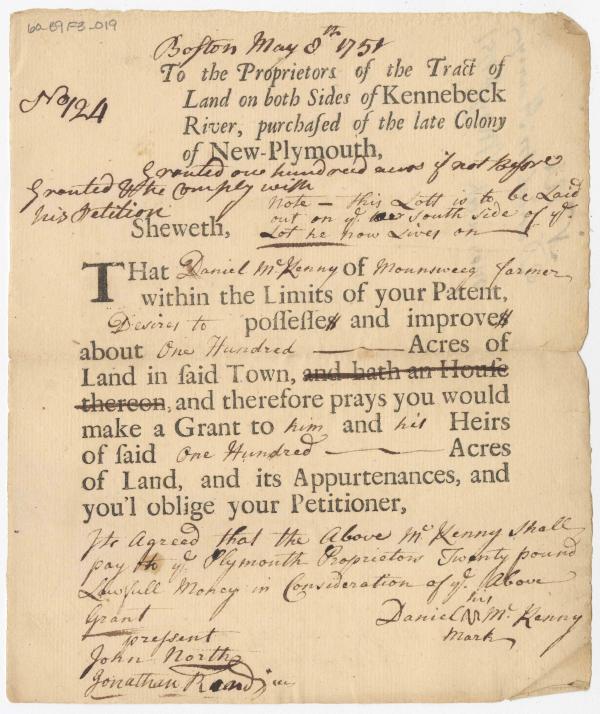 6a-B9F3-019
Boston May 8th 1751
No 124
To the Proprietors of the Tract of
Land on both Sides of Kennebeck
River, purchaſed of the late Colony
of New-Plymouth,
Granted one hundred acres if not Before
Granted & he Comply with
his Petition
Note - this Lott is to be Laid
out on ye South Side of ye
Lot he now Lives on
Sheweth,
THat Daniel Mc Kenny of Mounsweeg farmer
within the Limits of your Patent,
Desires to poſſeſſes and improves
about One Hundred Acres of
Land in ſaid Town, and hath an Houſe
thereon, and therefore prays you would
make a Grant to him and his Heirs
of ſaid One Hundred Acres
of Land, and its Appurtenances, and
you'l oblige your Petitioner,
Its Agreed that the Above Mc Kenny Shall
pay ye Plymouth Proprietors Twenty pound
Lawfull Money in Consideration of ye Above
Grant
his
Daniel Mc Kenny
Mark
present
John North
Jonathan